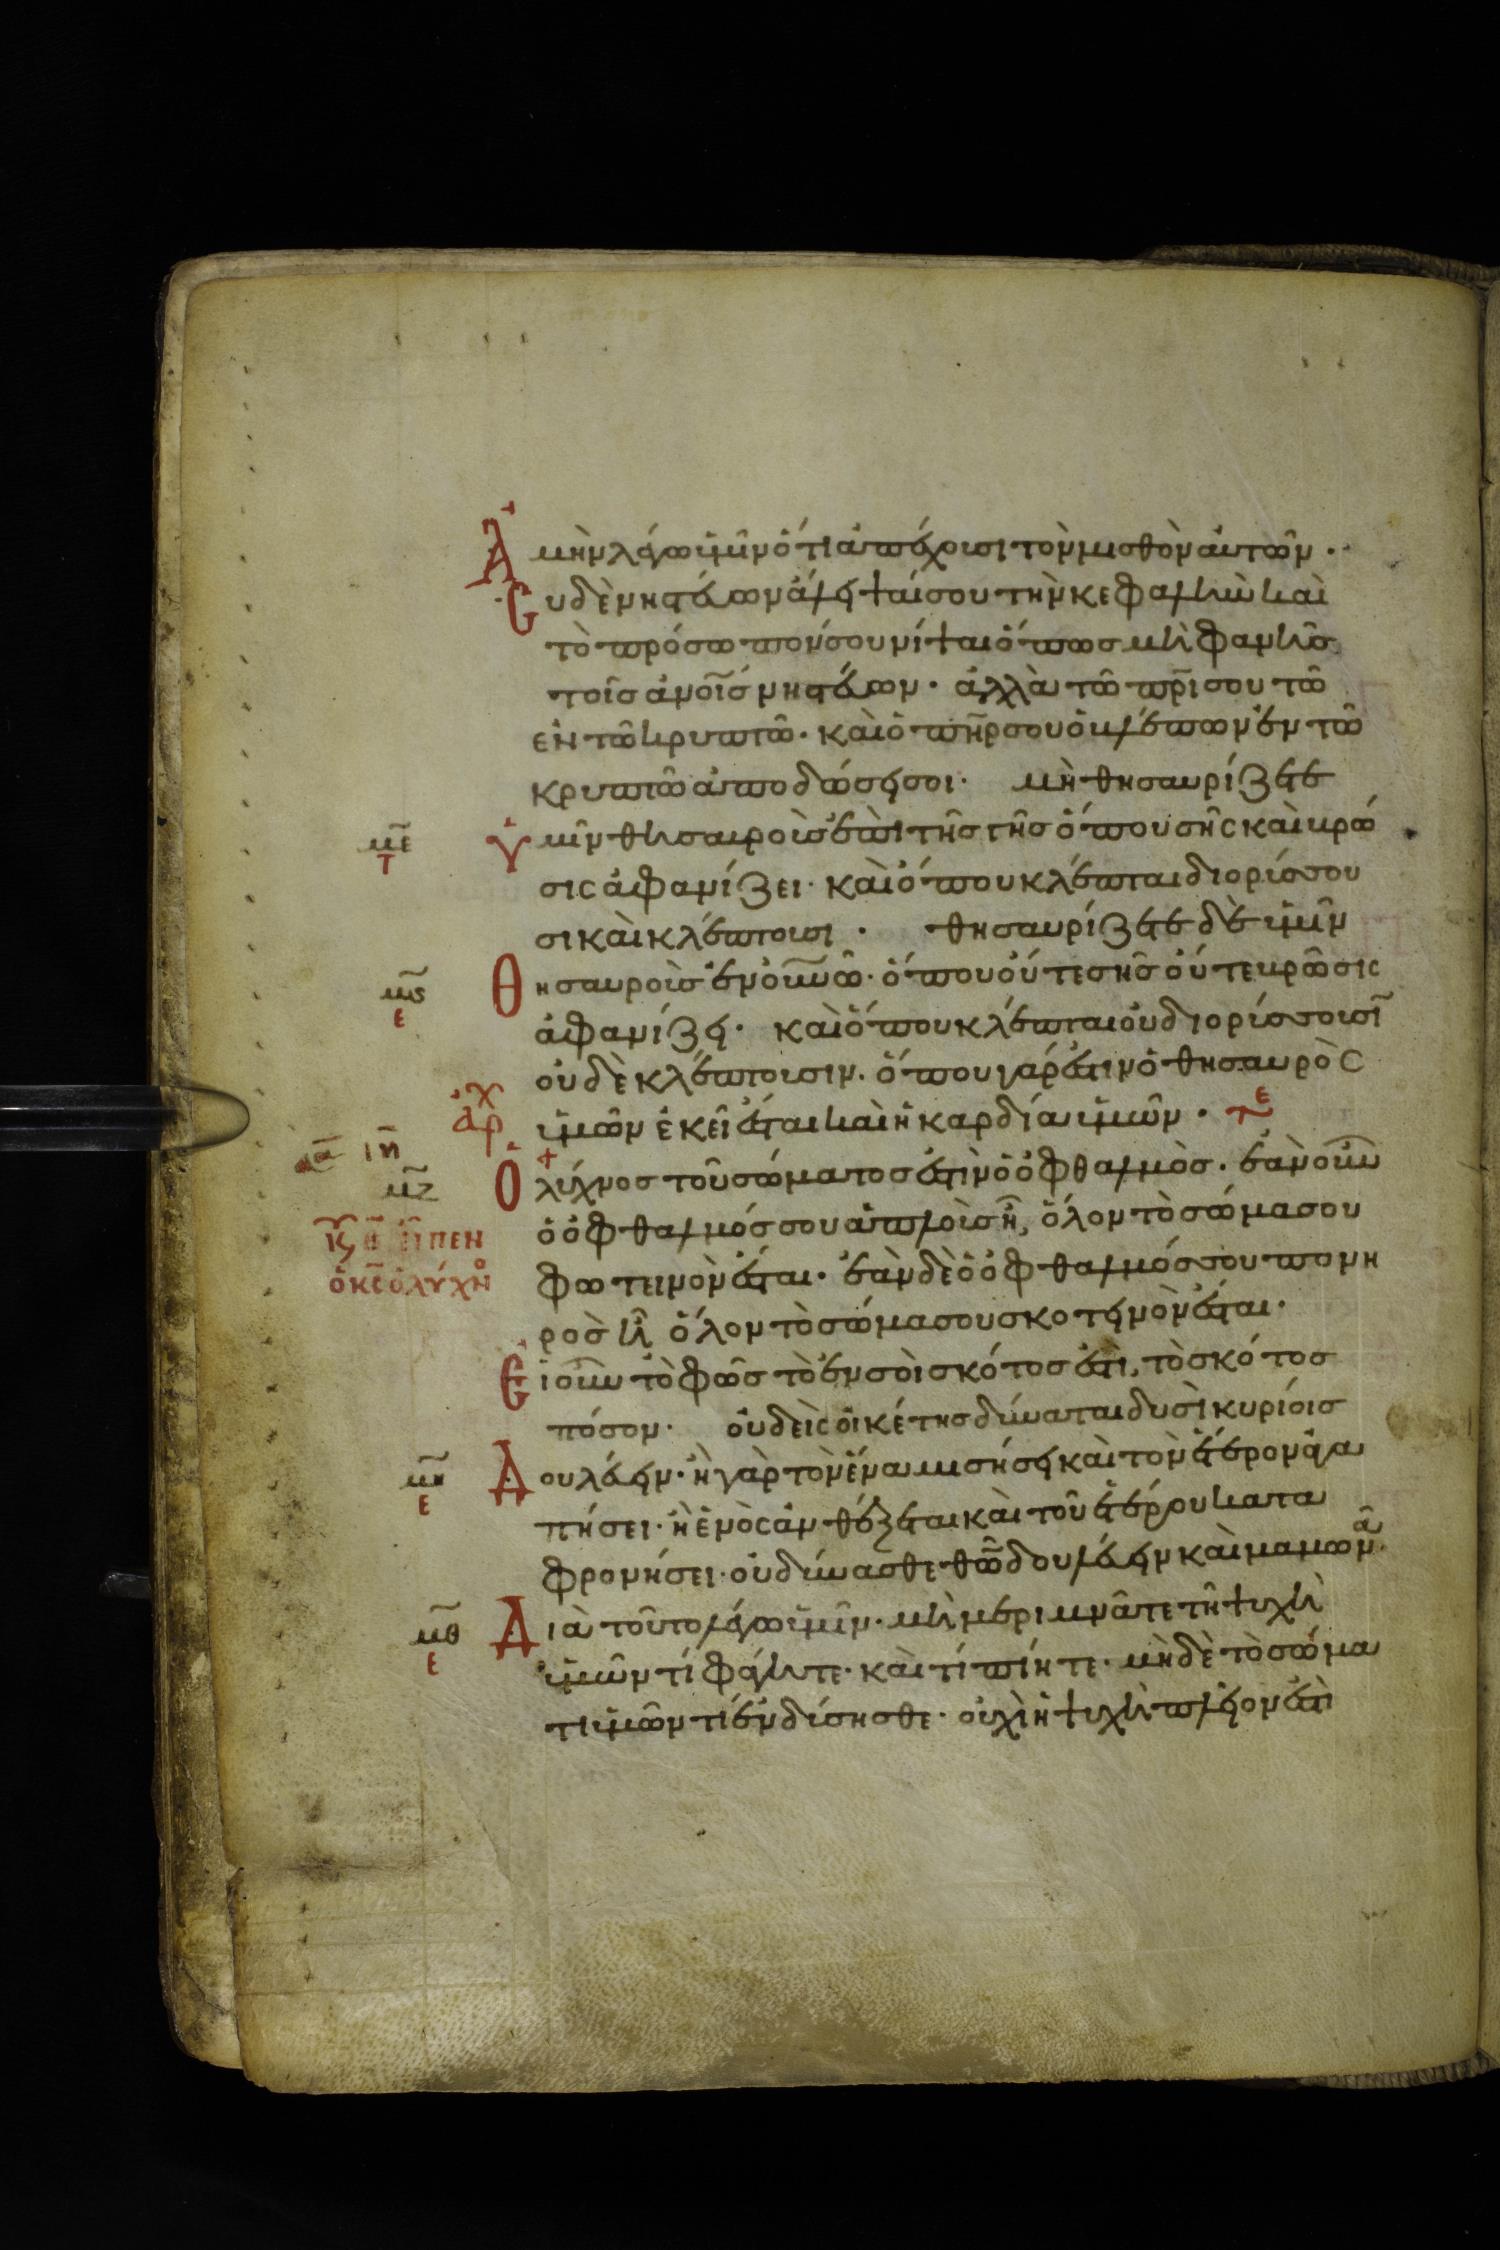 Ἀμὴν λέγω ὑμῖν ὅτι ἀπέχουσι τὸν μισθὸν αὐτῶν.
Σὺ δὲ νηστεύων ἄλειψαί σου τὴν κεφαλὴν καὶ
τὸ πρόσωπόν σου νίψαι ὅπως μὴ φανῇς
τοῖς ἀνοῖς νηστεύων. ἀλλὰ τῶ πρι σου τῶ
ἐν τῶ κρυπτῶ. καὶ ὁ πηρ σου ὁ βλέπων ἐν τῶ
κρυπτῶ ἀποδώσει σοι. μὴ θησαυρίζετε
με
τ
Ὑμῖν θησαυροὺς ἐπὶ τῆς γῆς ὅπου σὴς καὶ βρῶ
σις ἀφανίζει. καὶ ὅπου κλέπται διορύσσου
σι καὶ κλέπτουσι. θησαυρίζετε δὲ ὑμῖν
μϛ
ε
Θησαυροὺς ἐν οὐνῶ. ὅπου οὔτε σὴς οὔτε βρῶσις
ἀφανίζει. καὶ ὅπου κλέπται οὐ διορύσσουσι
οὐδὲ κλέπτουσιν. ὅπου γάρ ἐστιν ὁ θησαυρὸς
ἀρχ
ὑμῶν ἐκεῖ ἔσται καὶ ἡ καρδία ὑμῶν. τε
ιη
μζ
Ὁ λύχνος τοῦ σώματος ἐστὶν ὁ ὀφθαλμός. ἐὰν οὖν
ὁ ὀφθαλμός σου ἁπλοῦς ἦ, ὅλον τὸ σῶμα σου
εἶπεν
ὁ κς ὁ λύχνο
φωτεινὸν ἔσται. ἐὰν δὲ ὁ ὀφθαλμός σου πονη
ρὸς ἦ ὅλον τὸ σῶμα σου σκοτεινὸν ἔσται.
Εἰ οὖν τὸ φῶς τὸ ἐν σοὶ σκότος ἐστὶ, τὸ σκότος
πόσον. οὐδεὶς οἰκέτης δύναται δυσὶ κυρίοις
μη
ε
Δουλεύειν. ἢ γὰρ τὸν ἕνα μισήσει καὶ τὸν ἕτερον ἀγα
πήσει. ἢ ἑνὸς ἀνθέξεται καὶ τοῦ ἑτέρου κατα
φρονήσει. οὐ δύνασθε θῶ δουλεύειν καὶ μαμωνᾶ.
μθ
ε
Διὰ τοῦτο λέγω ὑμῖν. μὴ μεριμνᾶτε τῇ ψυχῇ
ὑμῶν τί φάγητε. καὶ τί πίητε. μὴ δὲ τὸ σῶμα
τι ὑμῶν τί ἐνδύσησθε. οὐχὶ ἡ ψυχὴ πλεῖον ἐστὶ